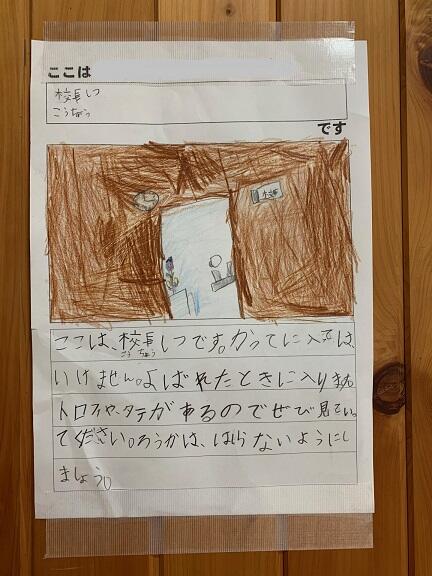 ここは
校長しつ
こうちょう
です
校長
ここは、校長しつです。かってに入っては、
こうちょう
いけません。よばれたときに入ります。
トロフィや、タテがあるのでぜひ見ていっ
てください。ろうかは、はしらないようにし
ましょう。